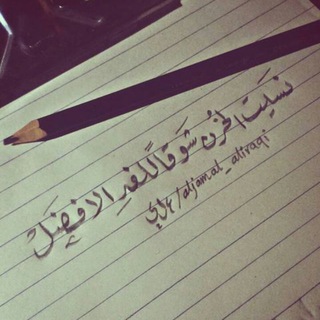 نسيت الحزن شوقًا للغدِ الافضل
aljamal_aliraqi /